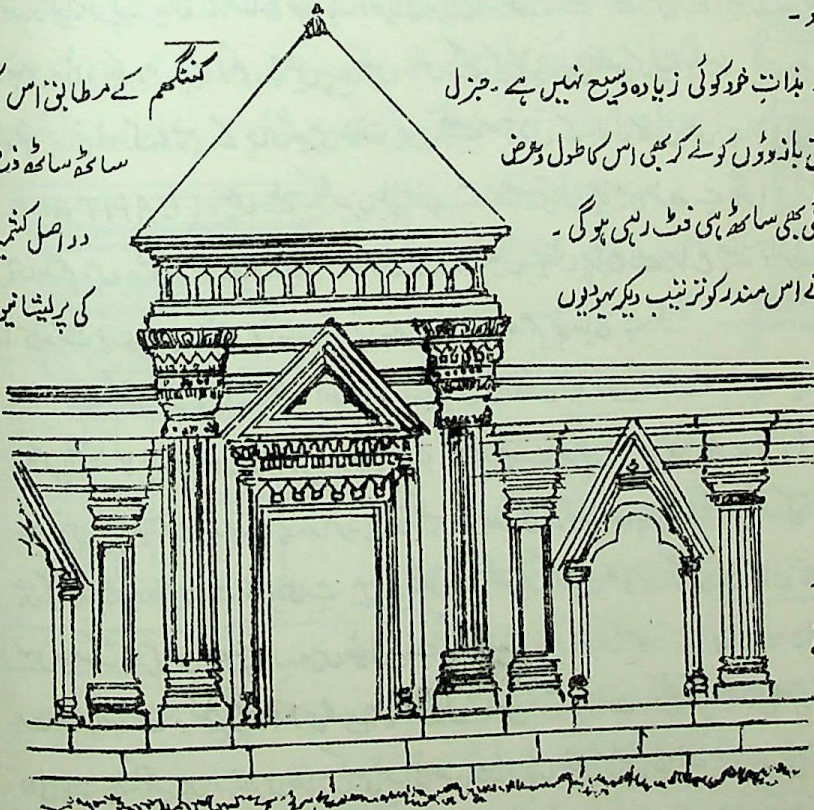 بذاتِ خود کوئی زیادہ وسیع نہیں ہے ۔جنرل کننگھم کے مطابق اس
بازوؤں کو لے کر بھی اس کا طول و عرض ساٹھ ساٹھ
بھی ساٹھ ہی فٹ رہی ہوگی ۔ دراصل
اس مندر کو ترتیب دیکر یہودیوں کی